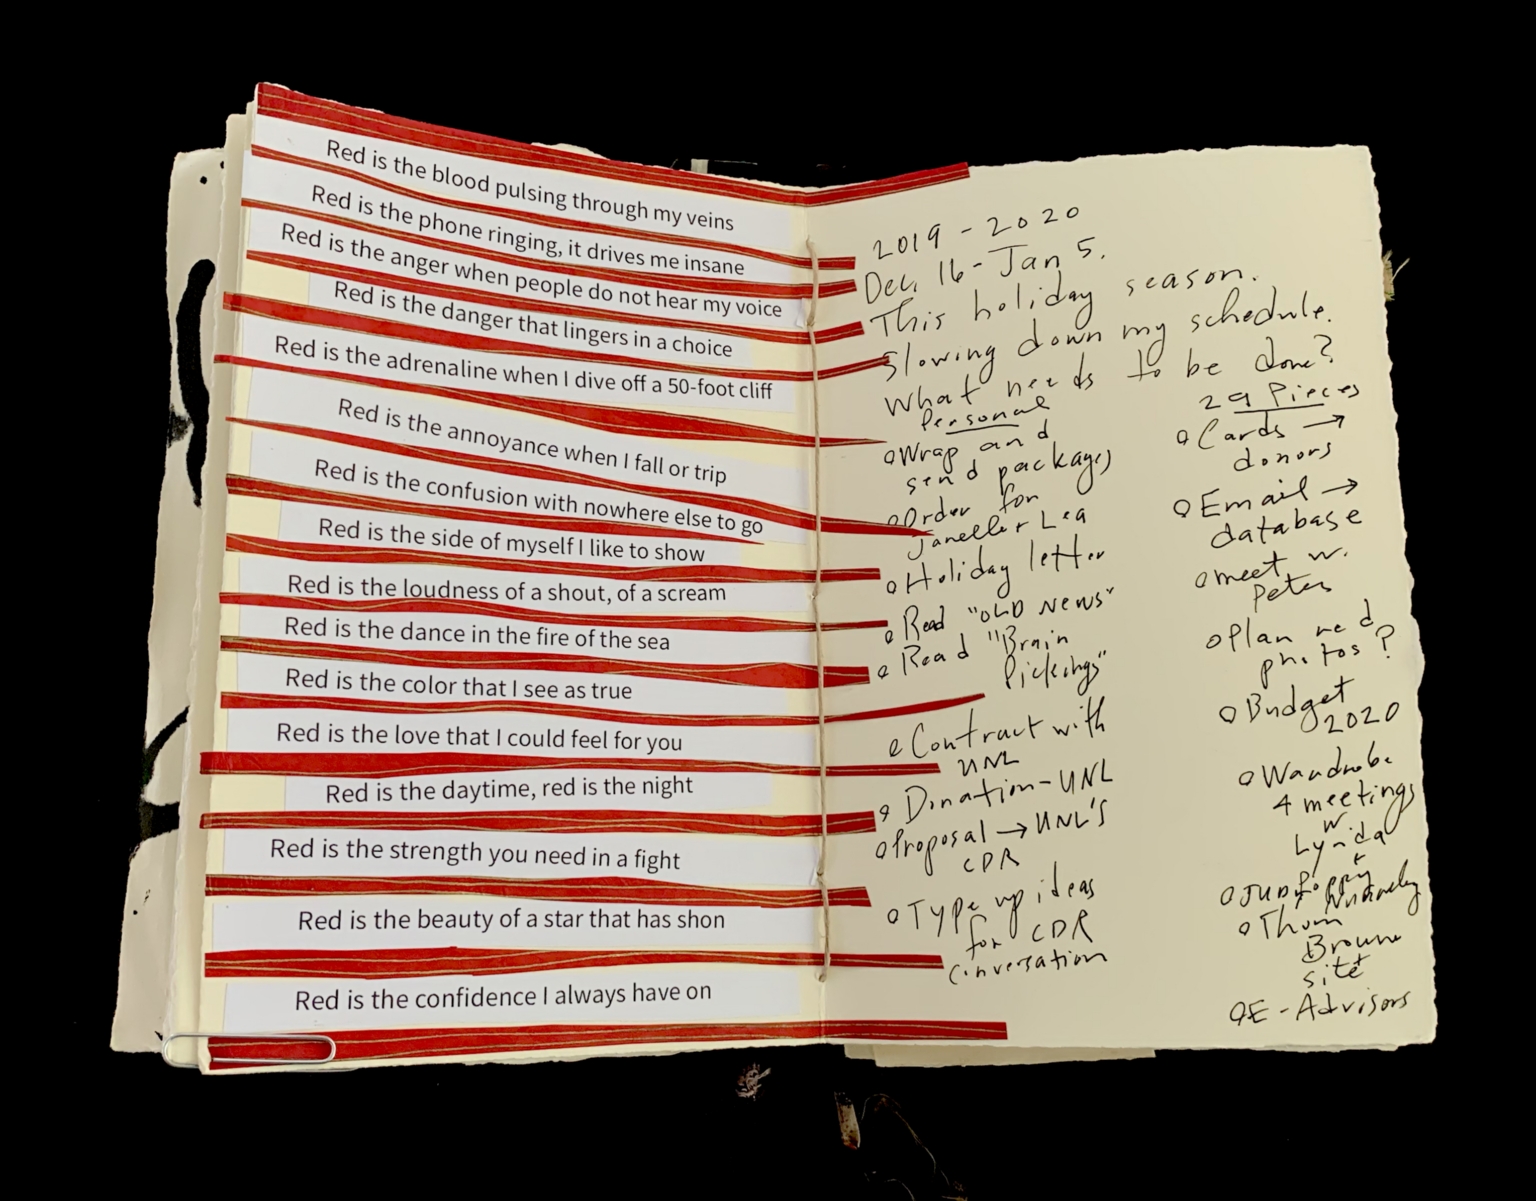 Red is the blood pulsing through my veins
Red is the phone ringing, it drives me insane
Red is the anger when people do not hear my voice
Red is the danger that lingers in a choice
Red is the adrenaline when I dive off a 50-foot cliff
Red is the annoyance when I fall or trip
Red is the confusion with nowhere else to go
Red is the side of myself I like to show
Red is the loudness of a shout, of a scream
Red is the dance in the fire of the sea
Red is the color that I see as true
Red is the love that I could feel for you
Red is the daytime, red is the night
Red is the strength you need in a fight
Red is the beauty of a star that has shon
Red is the confidence I always have on
2019 - 2020
Dec. 16 - Jan 5.
This holiday season.
Slowing down my schedule.
What needs to be done?
Personal
Wrap and
send packages
Order for
Lea
Holiday letter
Read "OLD NEWS"
Read "Brain
Pickings"
Contract with
UNL
Donation - UNL
Proposal → UNL's
CDR
Type up ideas
for CDR
Conversation
29 Pieces
Cards →
donors
Email →
database
meet w.
Peter
Plan red
photos?
Budget
2020
Wardrobe
4 meetings
w
Lynda
Thom
Browne
site
E-Advisors